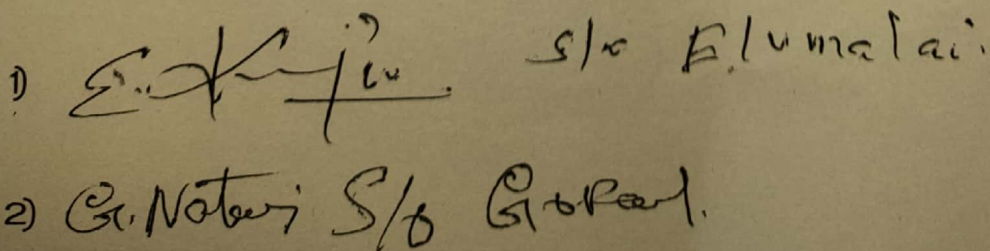 1) E. S/o Elumalai.
2) G. Nataraj S/o Gopal.